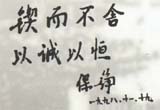 锲而不舍
以诚以恒
保铮
一九九八.十一.十九